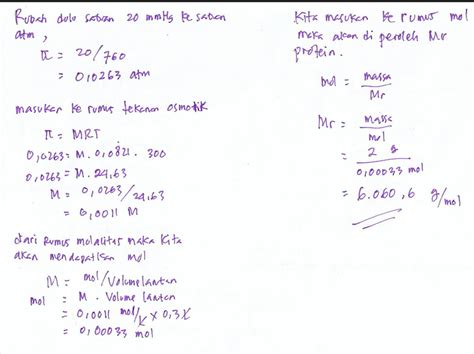 Rubah dulu satuan 20 mmHg ke satuan
atm,
π = 20/760
= 0,0263 atm
masukan ke rumus tekanan osmotik
π = MRT
0,0263 = M. 0,0821 . 300
0,0263 = M. 24,63
M = 0,0263/24,63
= 0,0011 M
dari Rumus molalitas maka Kita
akan mendapatkan mol
M = mol/Volume larutan
mol = M . Volume larutan
= 0,0011 mol/L x 0,3 L
= 0,00033 mol
Kita masukan ke rumus mol
maka akan di peroleh Mr
protein.
mol = massa
Mr
Mr = massa
mol
= 2 g
0,00033 mol
= 6.060,6 g/mol